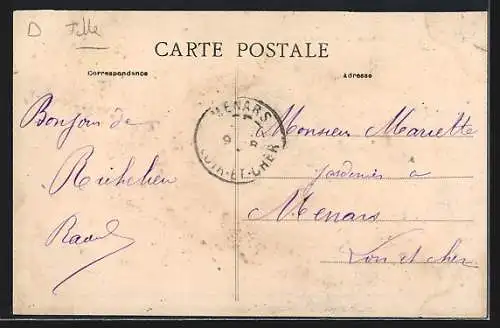 D Fille
CARTE POSTALE
Correspondance
Adresse
Bonjour de
Richelieu
Raoul
MENARS
9 - 8
LOIR-ET-CHER
Monsieur Mariette
Jardinier à
Menars
Loir et cher